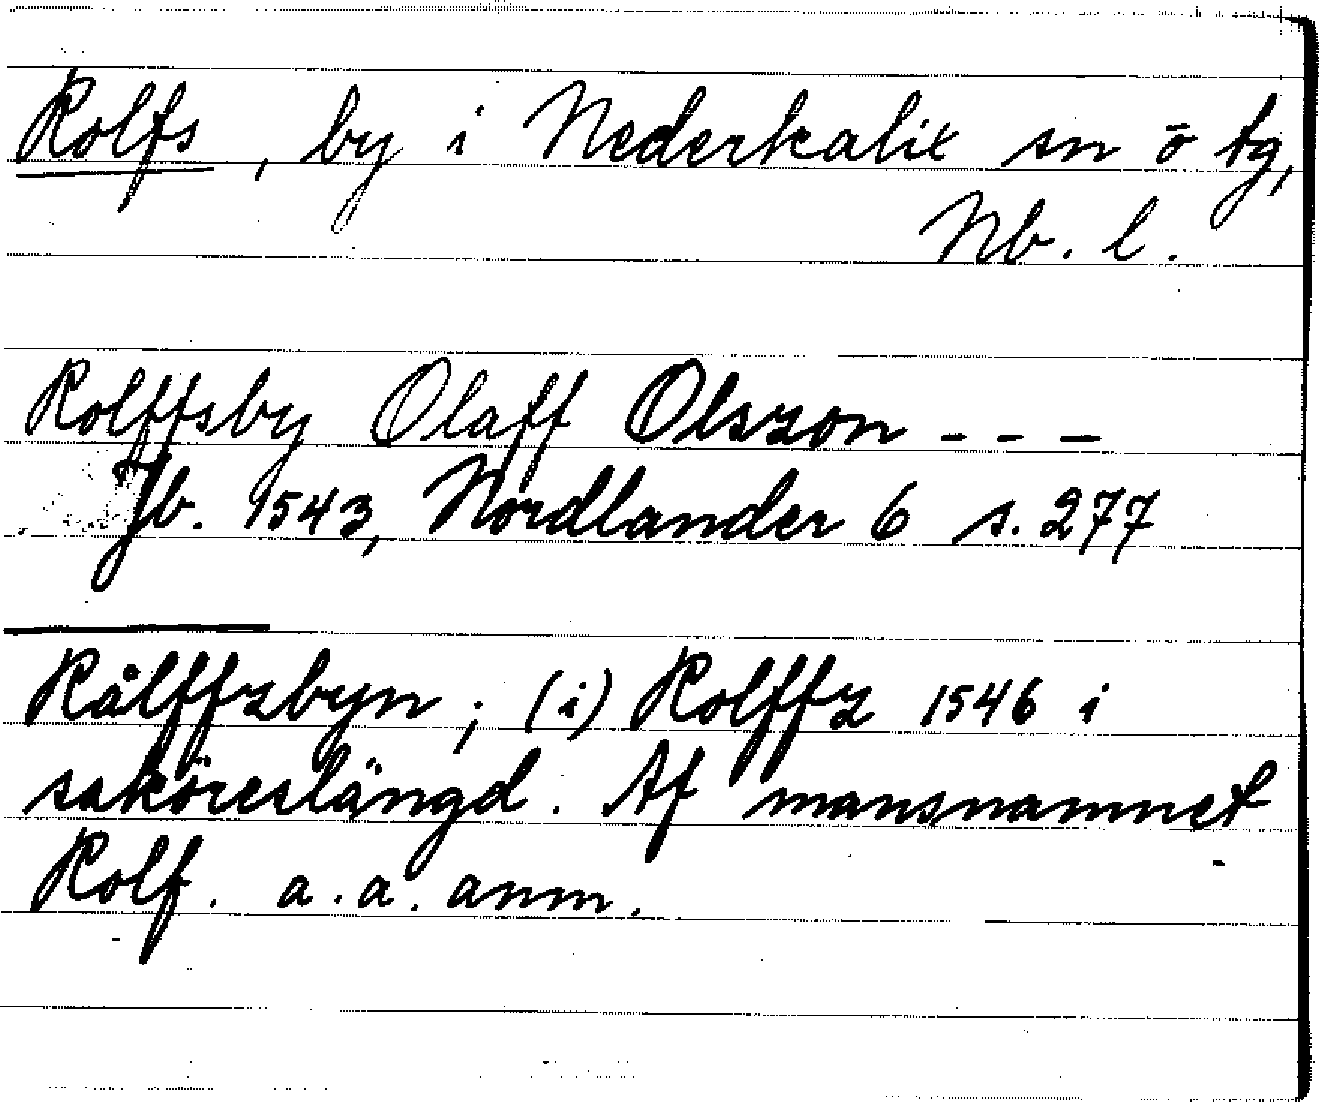 Rolfs, by i Nederkalix sn ö tg,
Nb. l.
Rolffsby Olaff Olszon - - -
Jb. 1543, Nordlander 6 s. 277
Rålffzbyn; (i) Rolffz 1546 i
saköreslängd. Af mansnamnet
Rolf. a.a. anm.